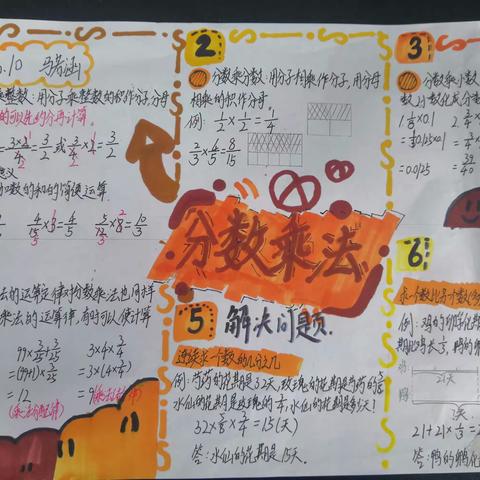 .10 马菏涵
乘整数:用分子乘整数的积作分子,分母
的可以先约分再计算。
3×2/4=3/2 或 3/4×2=3/2
意义
加数的和的简便运算
4/15×3=4/5 5/12×8=10/3
法的运算定律对分数乘法也同样
乘法的运算律,有时可以使计算
99×3/25+3/25
=(99+1)×3/25
=12
(乘法分配律)
3×4×3/4
=3×(4×3/4)
=9(乘法结合律)
2
分数乘分数:用分子相乘作分子,用分母
相乘的积作分母
例:1/2×1/2=1/4
2/3×4/5=8/15
分数乘法
5 解决问题.
连续求一个数的几分之几
例:芍药的花期是32天,玫瑰的花期是芍药的5/8
水仙的花期是玫瑰的3/4,水仙的花期是多少天?
32×5/8×3/4=15(天)
答:水仙的花期是15天。
3
分数乘小数
数,小数化成分数
×0.1
=0.125×0.1
=0.0125
=39/40
6
求一个数比另一个数
例:鸡的孵化期
期比鸡长1/3,鸭的
21天
鸭
?天
21+21×1/3=2
答:鸭的孵化